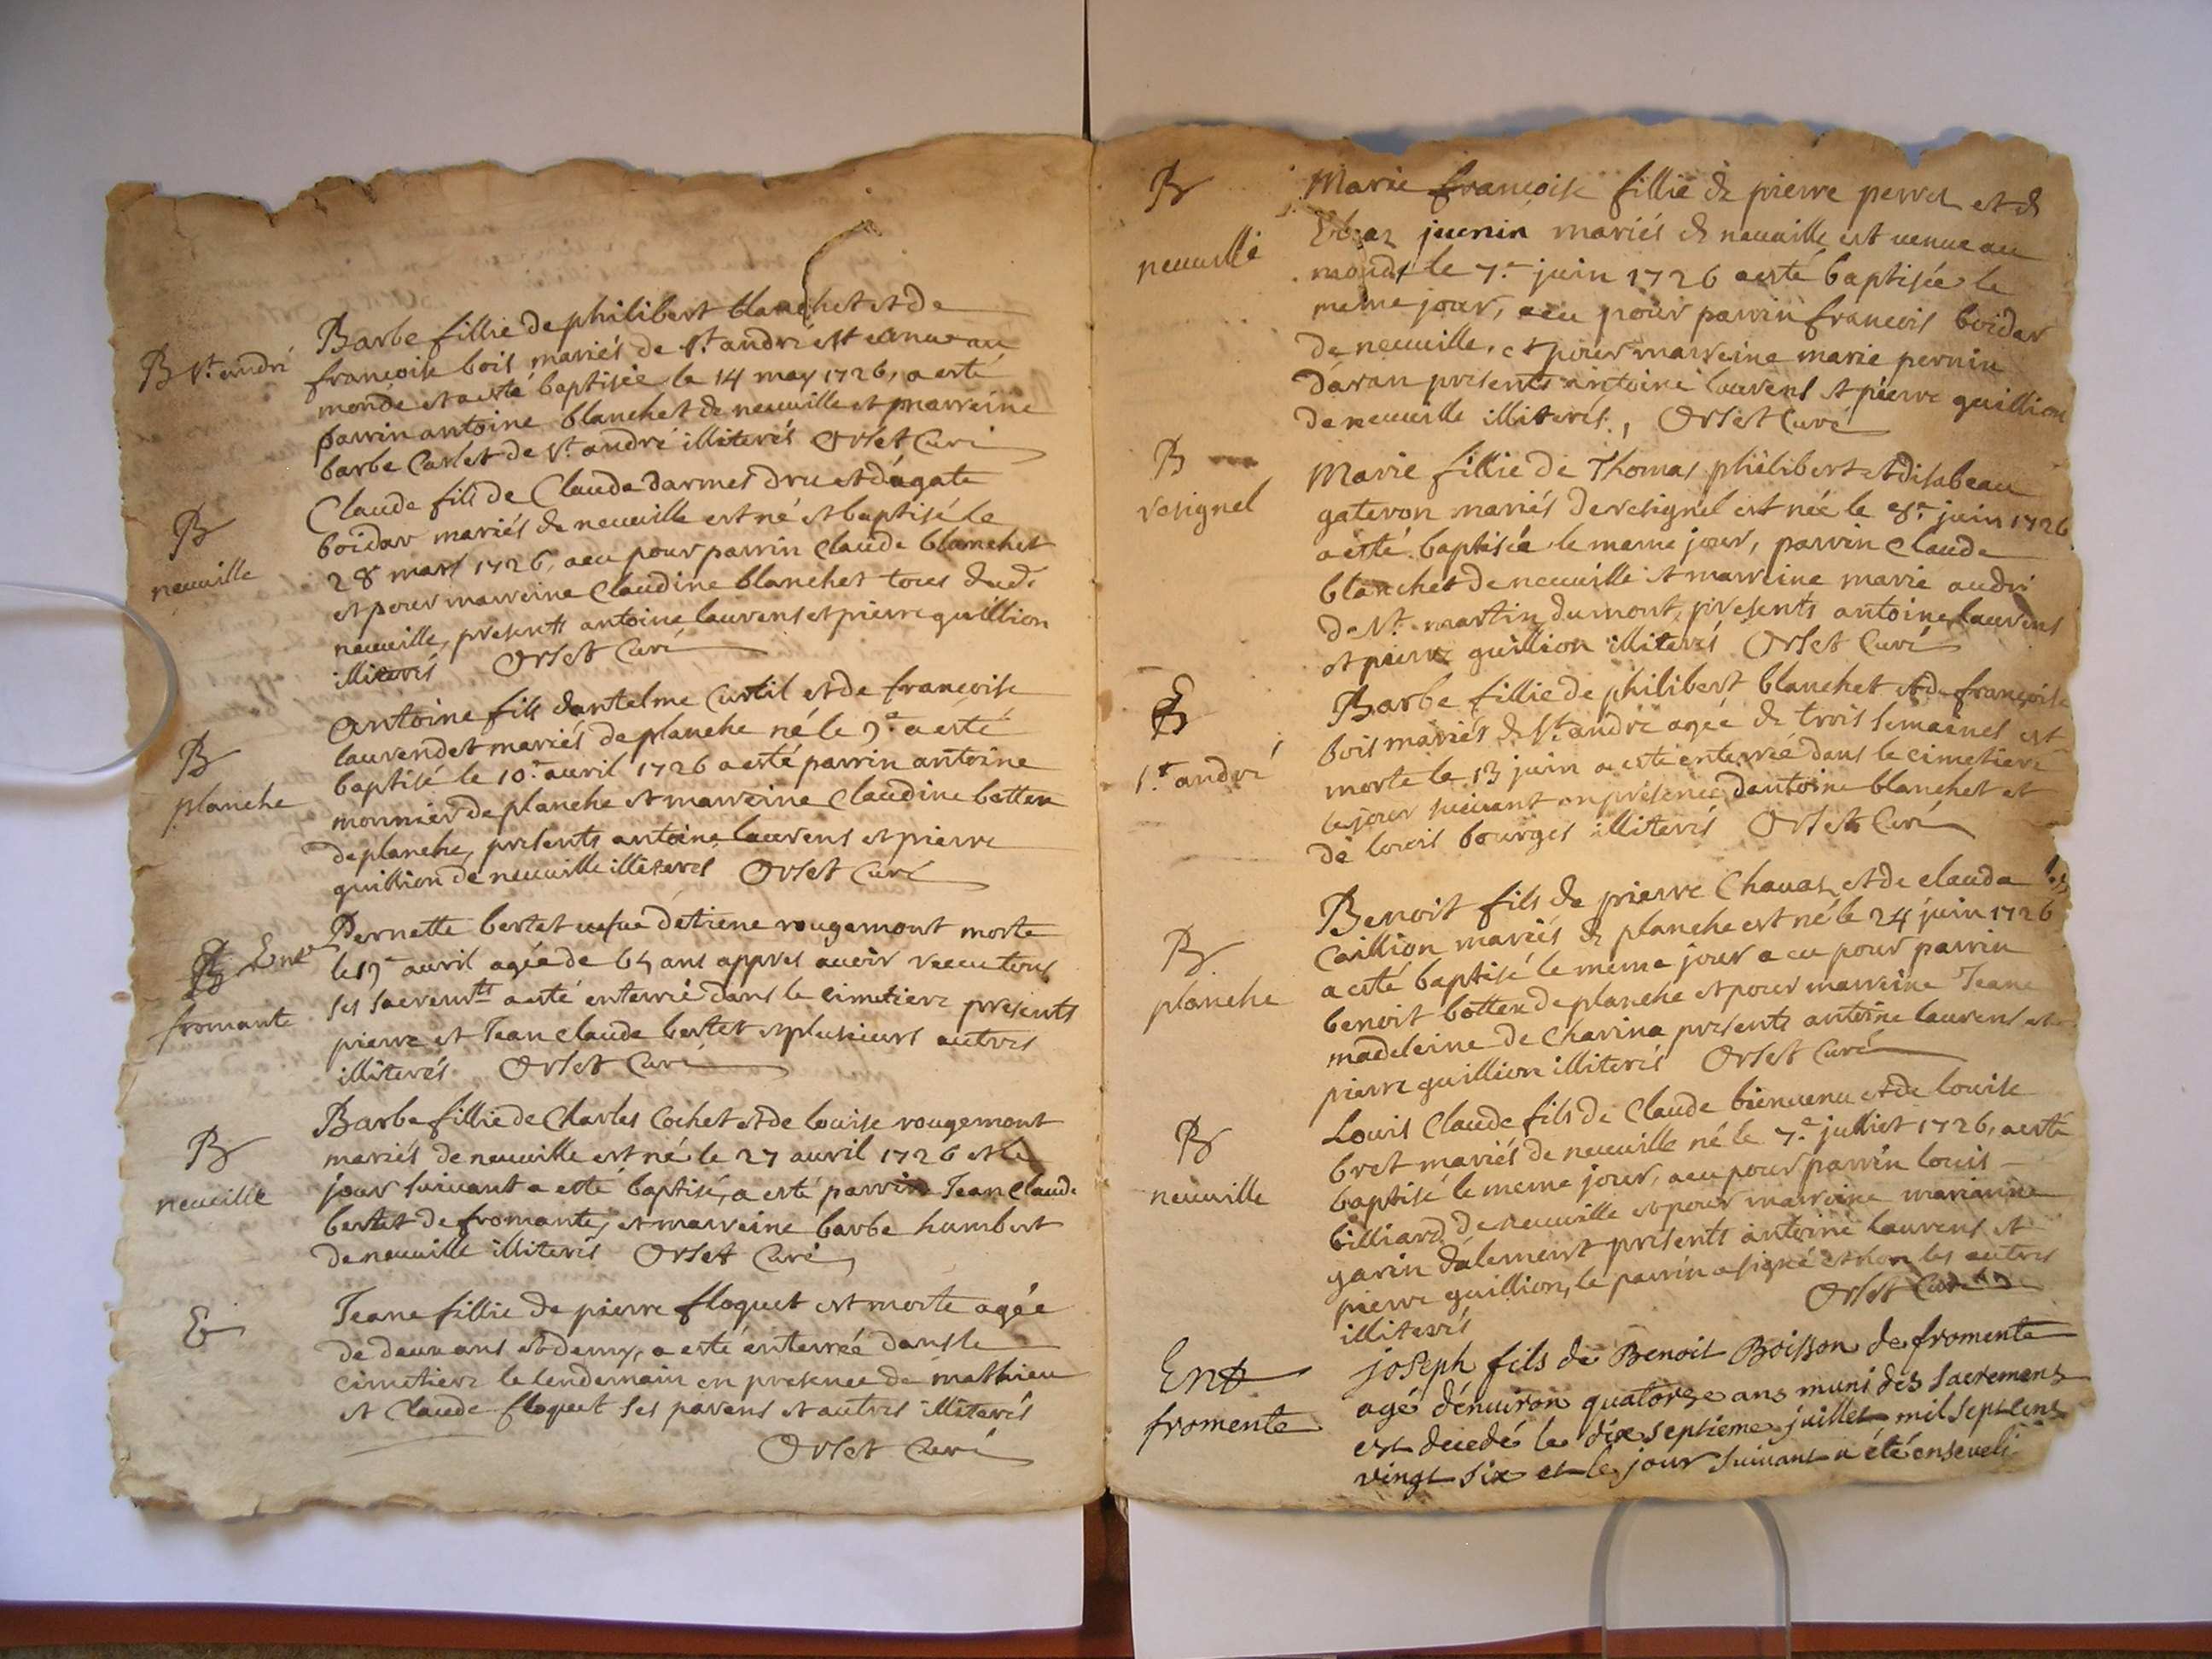 B St. andré
Barbe fillie de philibert blanchet et de
francoise bois mariés de St. andré est venue au
monde et a esté baptisée le 14 may 1726, a esté
parrin antoine blanchet de neuville et marreine
barbe Carlet de St. andré illiterés Orset Curé
B
neuville
Claude fils de Claude darmes dru et d'agate
boidar mariés de neuville est né et baptisé le
28 mars 1726, a eu pour parrin Claude blanchet
et pour marreine Claudine blanchet tous dud.
neuville, presents antoine laurens et pierre guillion
illiterés Orset Curé
B
planche
Antoine fils dantelme Curtil et de francoise
laurendet mariés de planche né le 9e a esté
baptisé le 10e auril 1726 a esté parrin antoine
monnier de planche et marreine Claudine botten
de planche, presents antoine laurens et pierre
guillion de neuville illiterés Orset Curé
Ent
fromante
Pernette bertet vefue détiene rougemont morte
auril agée de ans appres auoir receu tous
ses sacremts a esté enterrié dans le cimetiere presents
pierre et Jean claude bertet et plusieurs autres
illiterés Orset Curé
B
neuville
Barbe fillie de Charles Cochet et de louise rougemont
mariés de neuville est né le 27 auril 1726 et le
jour suivant a esté baptisé, a esté parrin Jean Claude
bertet de fromante, et marreine barbe humbert
de neuville illiterés Orset Curé
E
Jeane fillie de pierre floquet est morte agée
de deux ans et demy, a esté enterrée dans le
cimetiere le lendemain en presence de mathieu
et Claude floquet ses parens et autres illiterés
Orset Curé
B
neuville
Marie francoise fillie de pierre perret et d
juenin mariés d neuuille est uenue au
monde le 7e juin 1726 a esté baptisée le
meme jour, a eu pour parrin francois boidar
de neuuille, et pour marreine marie pernin
daran presents antoine laurens et pierre guillion
de neuuille illiterés, Orset Curé
B
rosignel
Marie fillie de Thomas philibert et disabeau
gateron mariés de rosignel est née le 8e juin 1726
a esté baptisée le meme jour, parrin Claude
blanchet de neuuille et marreine marie andri
de St. martin du mont, presents antoine laurens
et pierre guillion illiterés Orset Curé
E
St. andré
Barbe fillie de philibert blanchet et de françoise
Bois mariés d St. andre agée de trois semaines est
morte le 13 juin a esté enterrée dans le cimetiere
le jour suiuant en présence dantoine blanchet et
de louis bourges illiterés Orset Curé
B
planche
Benoit fils de pierre Chanas et de claude
Caillion mariés d planche est né le 24 juin 1726
a esté baptisé le meme jour a eu pour parrin
benoit botten de planche et pour marreine Jeane
madeleine de Charina presents antoine laurens et
pierre guillion illiterés Orset Curé
B
neuville
Louis Claude fils de Claude bienuenu et de louise
bret mariés de neuuille né le 7e julliet 1726, a esté
baptisé le meme jour, a eu pour parrin louis
billiard de neuuille et pour marreine marianne
garin dalement presents antoine laurens et
pierre guillion, le parrin a signé et non les autres
illiterés
Orset Curé
Ent
fromente
joseph fils de Benoit Boisson de fromente
agé d'enuiron quatorze ans muni des sacrements
est decedé le dix septieme juillet mil sept cent
vingt six et le jour suivant a été enseueli